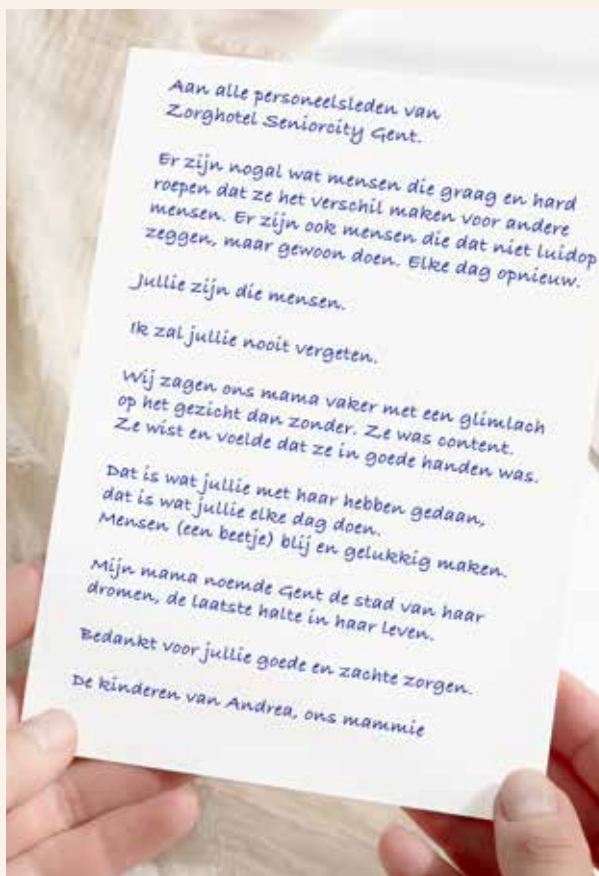 Aan alle personeelsleden van
Zorghotel Seniorcity Gent.
Er zijn nogal wat mensen die graag en hard
roepen dat ze het verschil maken voor andere
mensen. Er zijn ook mensen die dat niet luidop
zeggen, maar gewoon doen. Elke dag opnieuw.
Jullie zijn die mensen.
Ik zal jullie nooit vergeten.
Wij zagen ons mama vaker met een glimlach
op het gezicht dan zonder. Ze was content.
Ze wist en voelde dat ze in goede handen was.
Dat is wat jullie met haar hebben gedaan,
dat is wat jullie elke dag doen.
Mensen (een beetje) blij en gelukkig maken.
Mijn mama noemde Gent de stad van haar
dromen, de laatste halte in haar leven.
Bedankt voor jullie goede en zachte zorgen.
De kinderen van Andrea, ons mammie